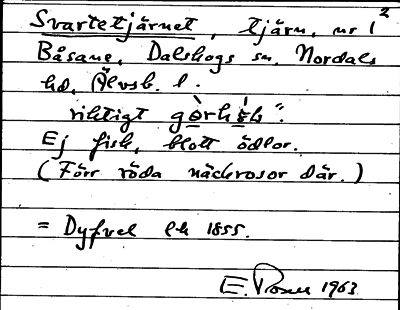 Svartetjärnet, tjärn, nr 1²
Båsane, Dalskogs sn. Nordals
hd, Älvsb. l.
riktigt görhök".
Ej fisk, blott ödlor.
(Förr röda näckrosor där.)
= Dyfvel ek 1855.
E. 1963